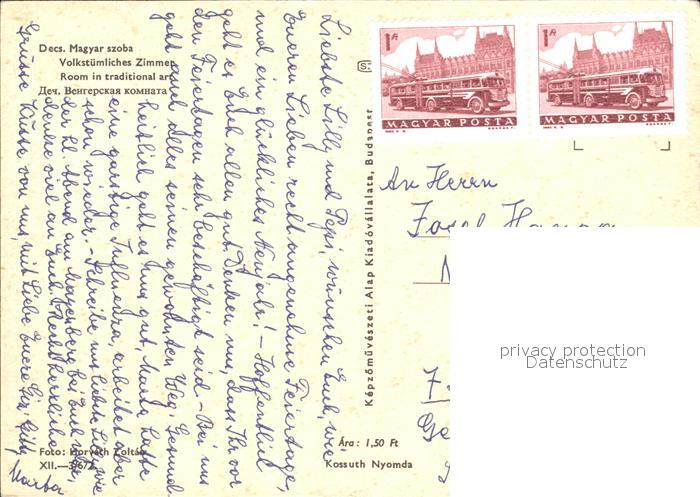 Decs. Magyar szoba
Volkstümliches Zimmer
Room in traditional art
Деч. Венгерская комната
Liebste Lilly und Pepi, wünschen Euch, wie
Eueren Lieben recht angenehme Feiertage,
und ein glückliches Neujahr! – Hoffentlich
geht es Euch allen gut. Denken uns, dass Ihr vor
den Feiertagen sehr beschäftigt seid. – Bei uns
geht auch alles seinen gewohnten Weg. Gesund-
heitlich geht es uns gut, Marta hatte
eine garstige Influenza, arbeitet aber
schon wieder. – Schreibe uns liebste Lilly, wie
der Hl. Abend am bei Euch war,
denke viel an Euch. Recht herzliche
Grüsse Küsse von uns, mit Liebe Euere
Marta
Foto: Horváth Zoltán
XII.—3/672
Képzőművészeti Alap Kiadóvállalata, Budapest
Ára: 1,50 Ft
Kossuth Nyomda
1 Ft
MAGYAR POSTA
1 Ft
MAGYAR POSTA
An Herrn
Josef
privacy protection
Datenschutz